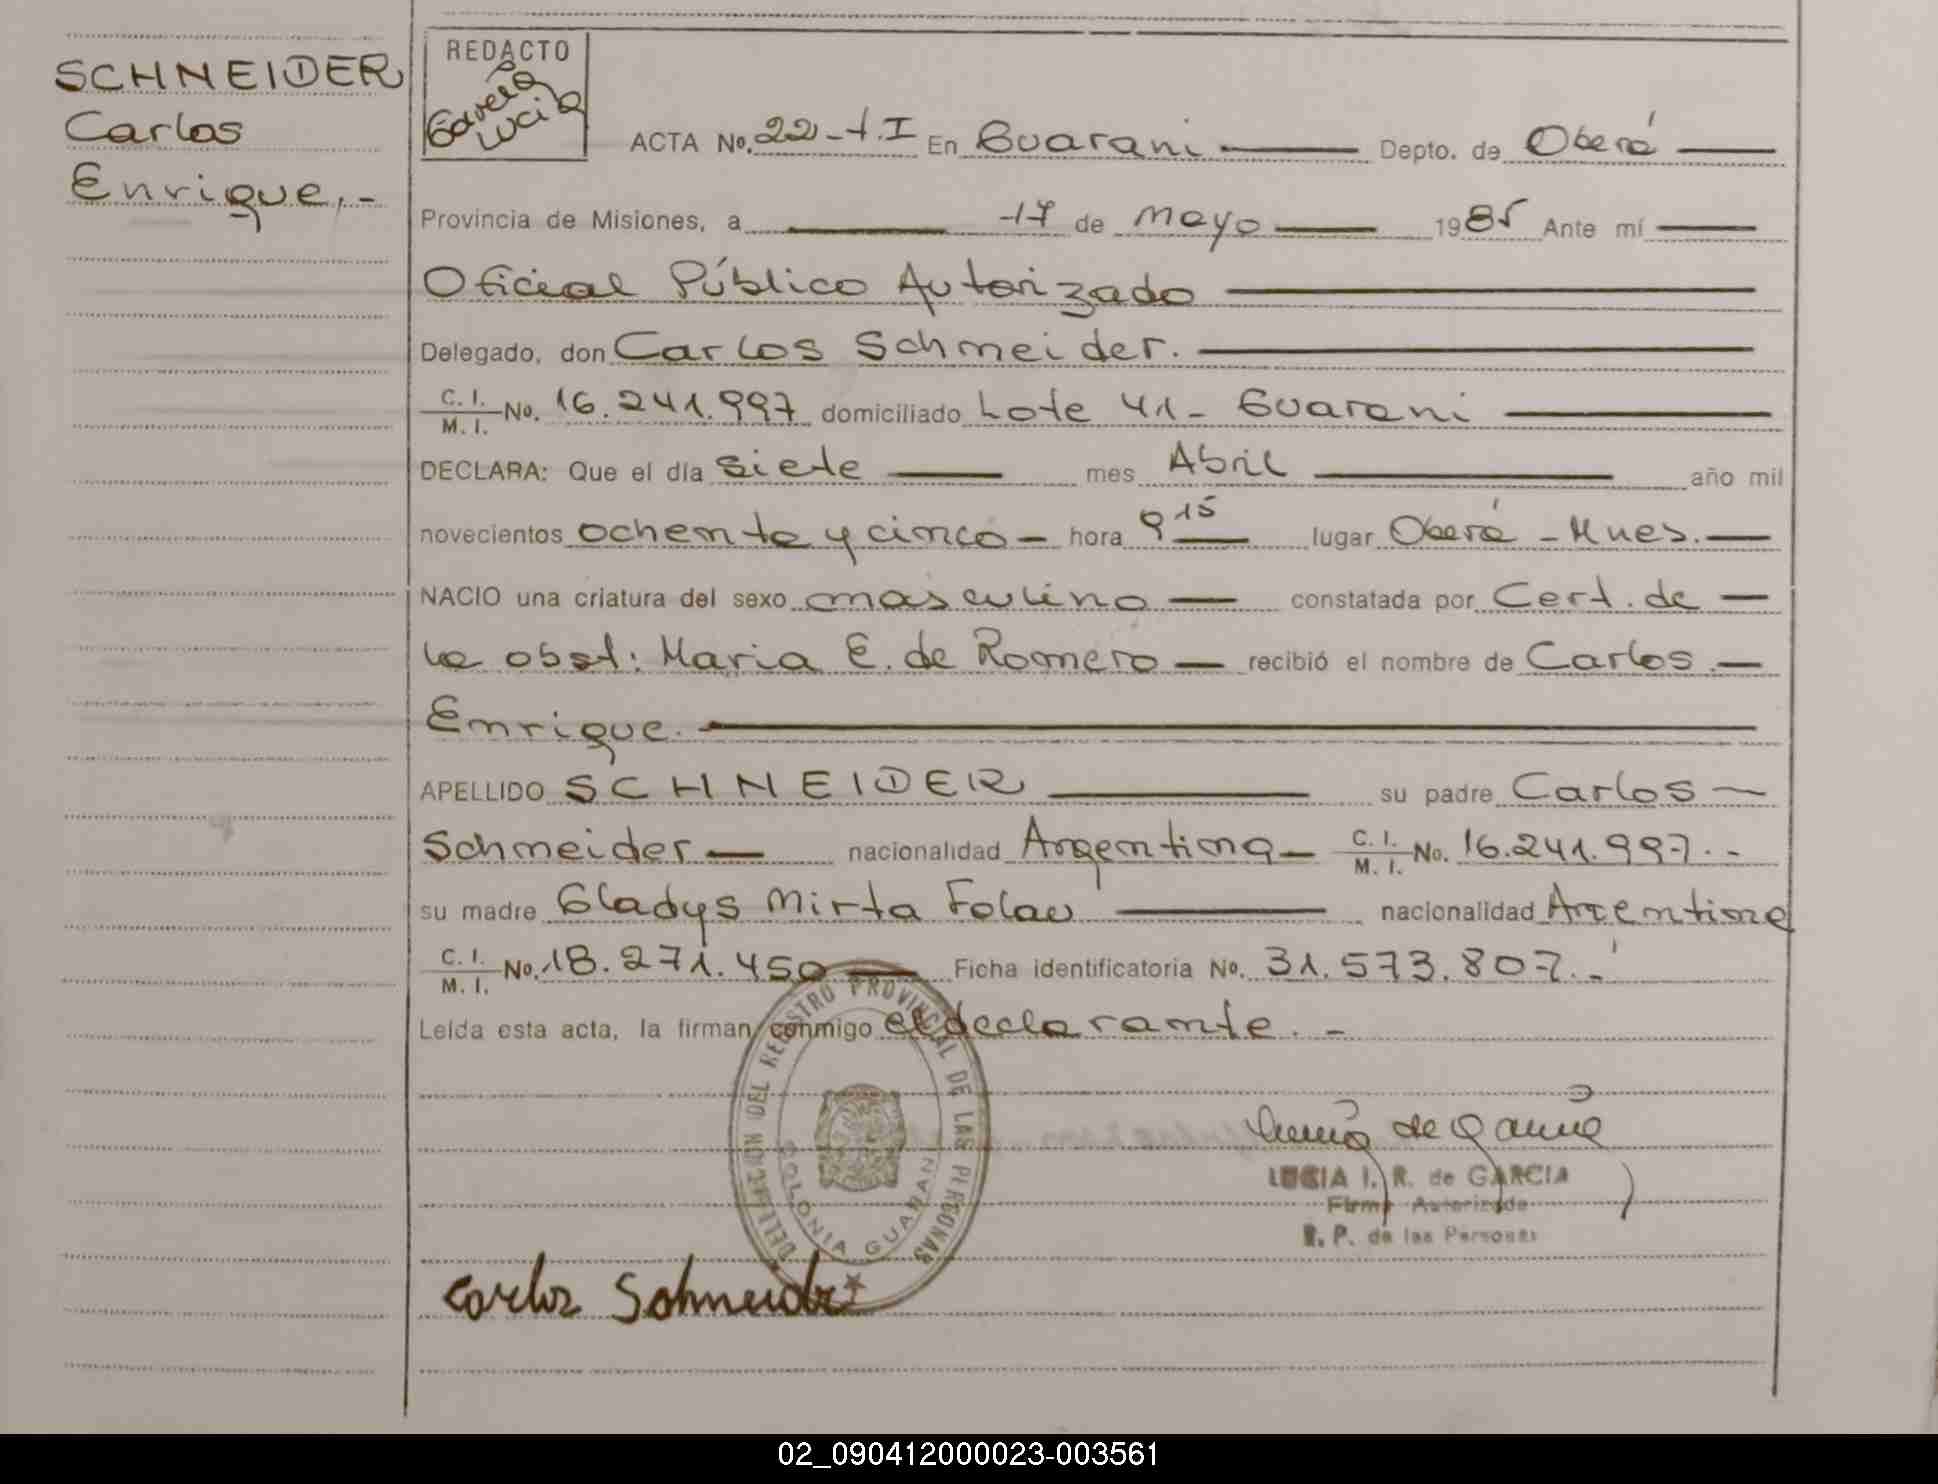 SCHNEIDER
Carlos
Enrique.-
REDACTO
Garcia
Lucia
ACTA No. 22-t.I En Guarani Depto. de Oberá
Provincia de Misiones, a 17 de Mayo 1985 Ante mí
Oficial Público Autorizado
Delegado, don Carlos Schneider.
C. I.
M. I. No. 16.241.997 domiciliado Lote 41- Guarani
DECLARA: Que el día siete mes Abril año mil
novecientos ochenta y cinco - hora 9 15 lugar Oberá - Mnes.
NACIO una criatura del sexo masculino constatada por Cert. de
la obst: Maria E. de Romero recibió el nombre de Carlos
Enrique.
APELLIDO SCHNEIDER su padre Carlos
Schneider nacionalidad Argentina C. I.
M. I. No. 16.241.997.-
su madre Gladys Mirta Folav nacionalidad Argentina
C. I.
M. I. No. 18.271.450 Ficha identificatoria No. 31.573.807.-
Leída esta acta, la firman conmigo el declarante.-
DELEGACION DEL REGISTRO PROVINCIAL DE LAS PERSONAS
COLONIA GUARANI
Lucia de Garcia
LUCIA I. R. de GARCIA
Firma Autorizada
R. P. de las Personas
Carlos Schneider
02_090412000023-003561